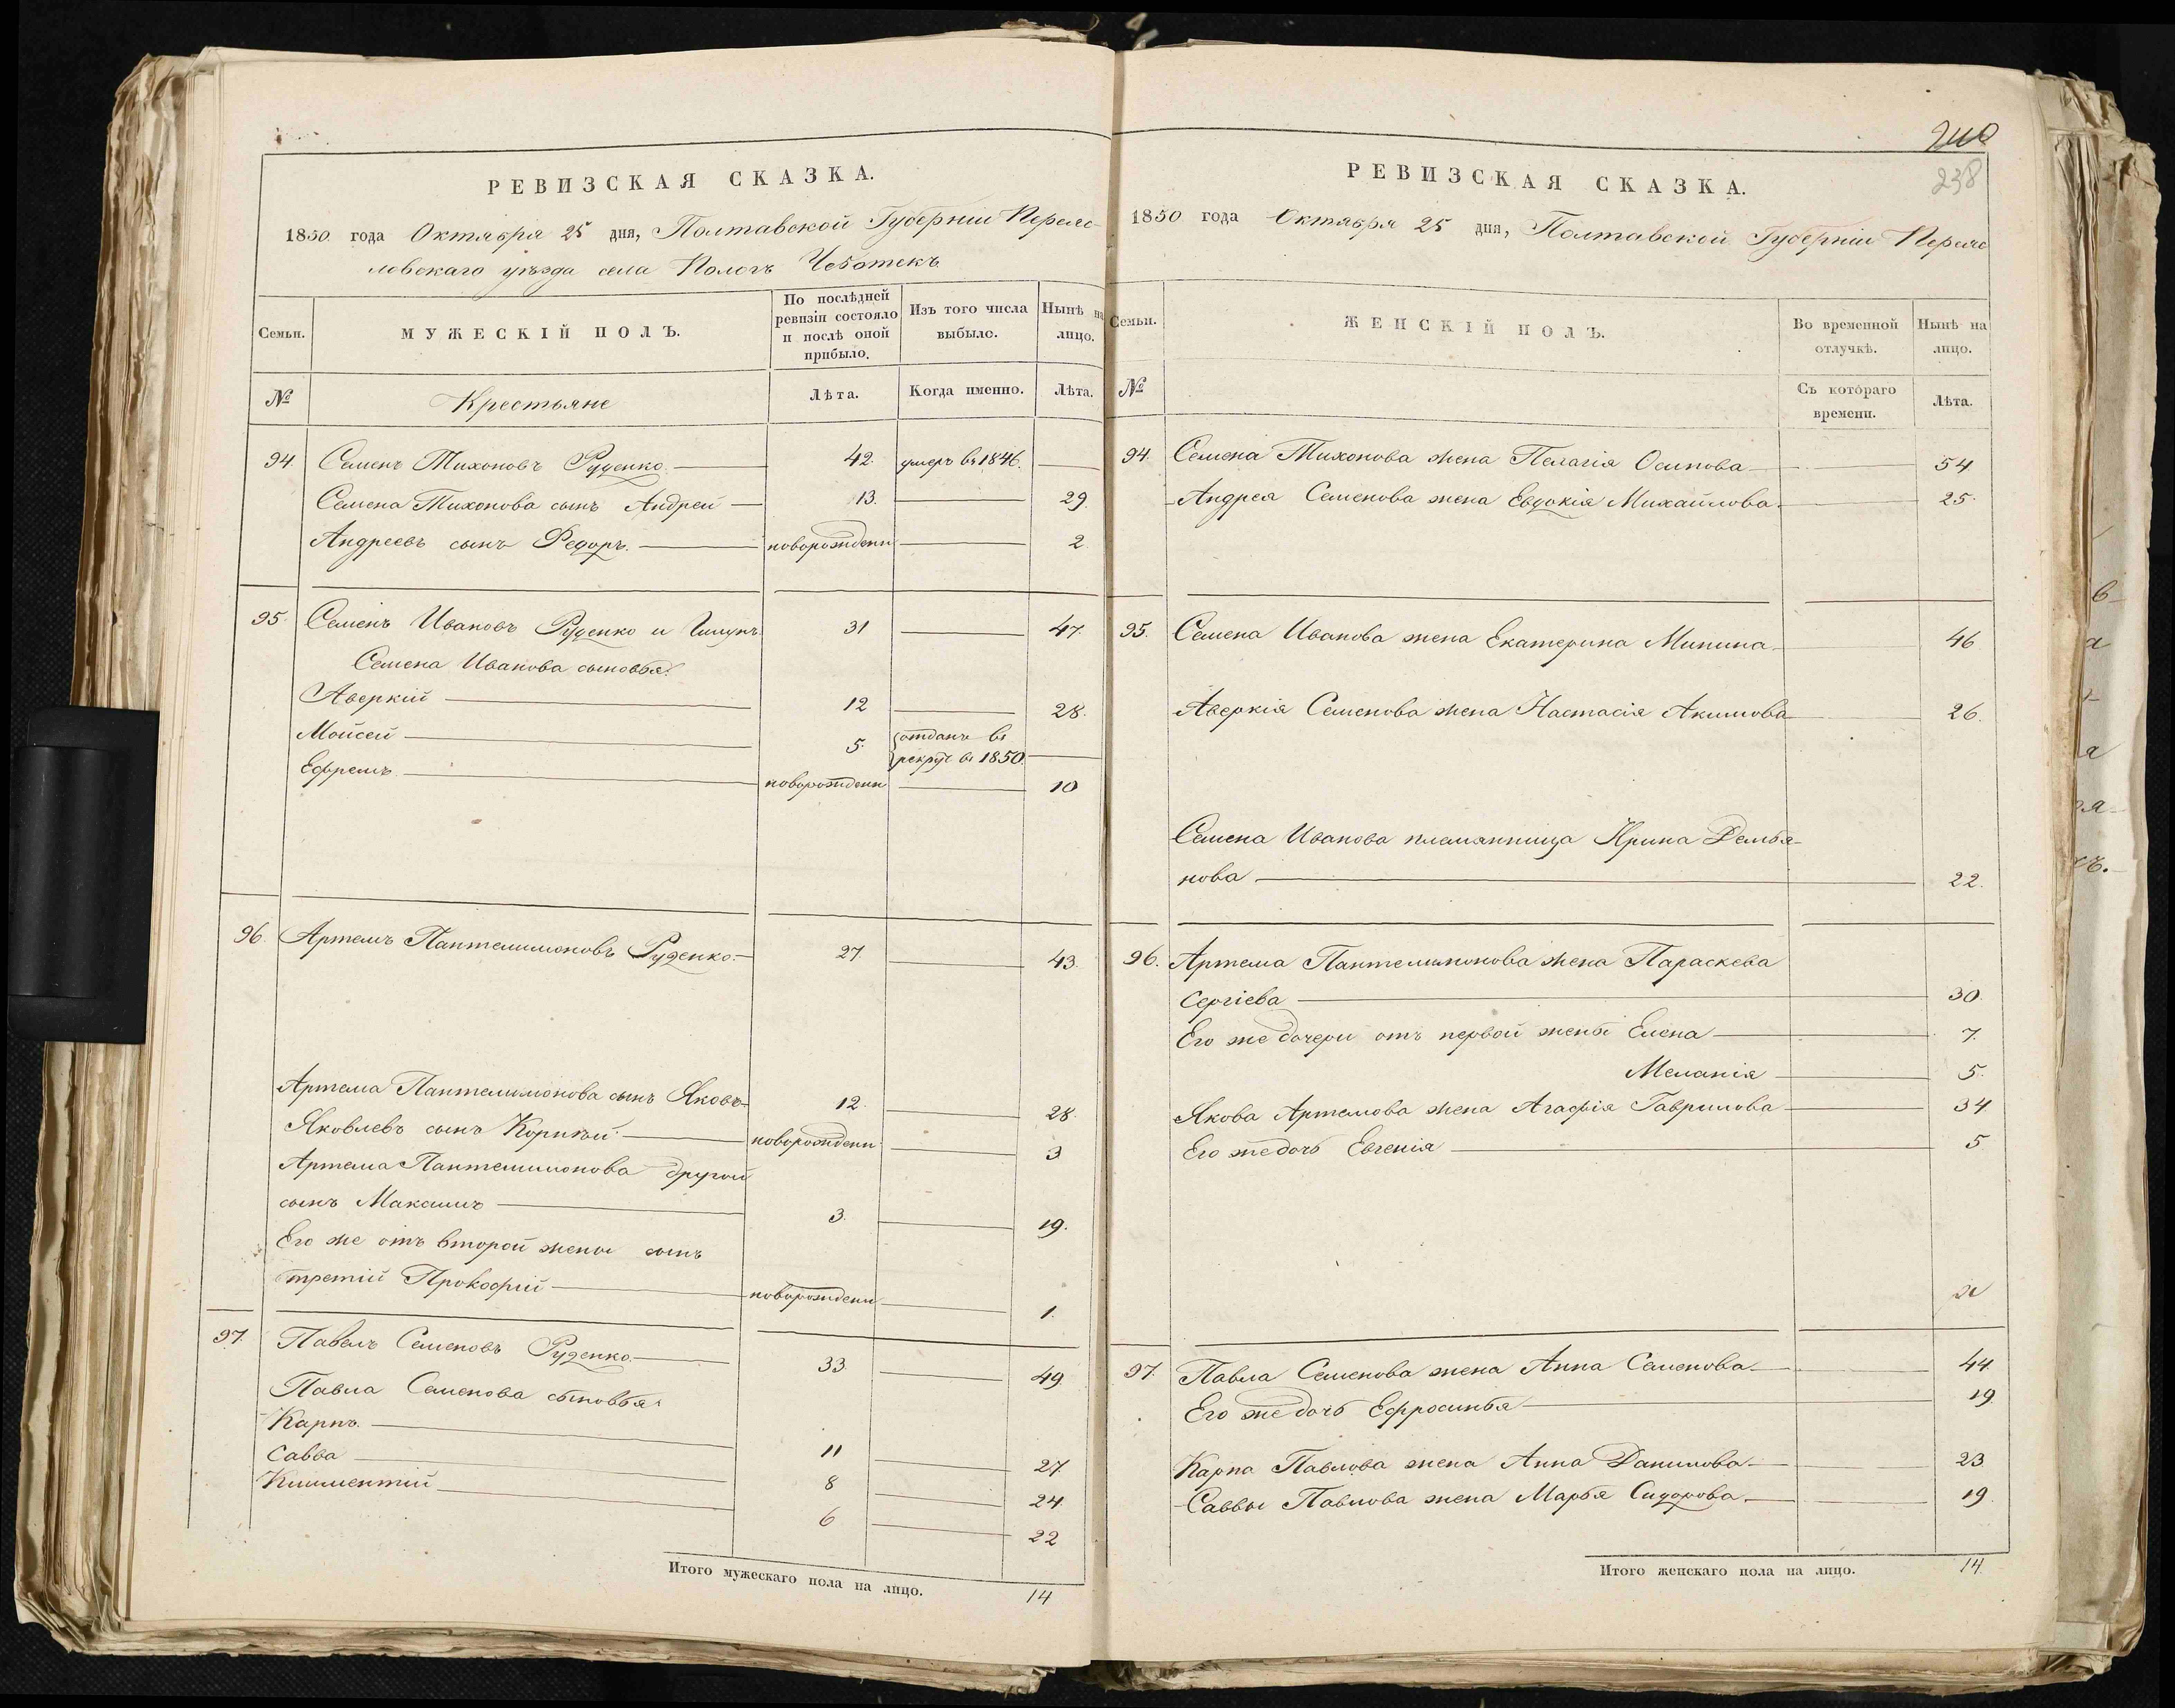 РЕВИЗСКАЯ СКАЗКА.
1850 года Октября 25 дня, Полтавской Губерніи Переяс-
ловскаго уѣзда села Пологъ Чеботекъ
Семьи.
МУЖЕСКІЙ ПОЛЪ.
По послѣдней ревизіи состояло и послѣ оной прибыло.
Изъ того числа выбыло.
Нынѣ на лицо.
№
Крестьяне
Лѣта.
Когда именно.
Лѣта.
94. Семенъ Тихоновъ Руденко 42. умеръ въ 1846.
Семена Тихонова сынъ Андрей 13. 29.
Андреевъ сынъ Федоръ. новорожденн 2.
95. Семенъ Ивановъ Руденко и 31 47.
Семена Иванова сыновья:
Аверкій 12 28.
Мойсей 5. отданъ въ
рекрут въ 1850.
Ефремъ новорожденн 10
96. Артемъ Пантелимоновъ Руденко. 27 43.
Артема Пантелимонова сынъ Яковъ 12. 28.
Яковлевъ сынъ Корнѣй новорожденн 3.
Артема Пантелимонова другой
сынъ Максимъ 3. 19.
Его же отъ второй жены сынъ
третій Прокофій новорожденн 1.
97. Павелъ Семеновъ Руденко. 33. 49.
Павла Семенова сыновья:
Карпъ. 11 27.
Савва 8 24.
Климентій 6 22
Итого мужескаго пола на лицо. 14
240
238
РЕВИЗСКАЯ СКАЗКА.
1850 года Октября 25 дня, Полтавской Губерніи Переяс
Семьи.
ЖЕНСКІЙ ПОЛЪ.
Во временной отлучкѣ.
Нынѣ на лицо.
№
Съ котораго времени.
Лѣта.
94. Семена Тихонова жена Пелагія Осипова 54
Андрея Семенова жена Евдокія Михайлова. 25.
95. Семена Иванова жена Екатерина Минина 46.
Аверкія Семенова жена Настасія Акимова 26.
Семена Иванова племянница Ирина Демья-
нова 22.
96. Артема Пантелимонова жена Параскева
Сергіева 30.
Его же дочери отъ первой жены Елена 7.
Меланія 5.
Якова Артемова жена Агафія Гаврилова 34
Его же дочь Евгенія 5
97. Павла Семенова жена Анна Семенова 44.
Его же дочь Ефросинья 19.
Карпа Павлова жена Анна Данилова 23.
Саввы Павлова жена Марья Сидорова. 19.
Итого женскаго пола на лицо. 14.